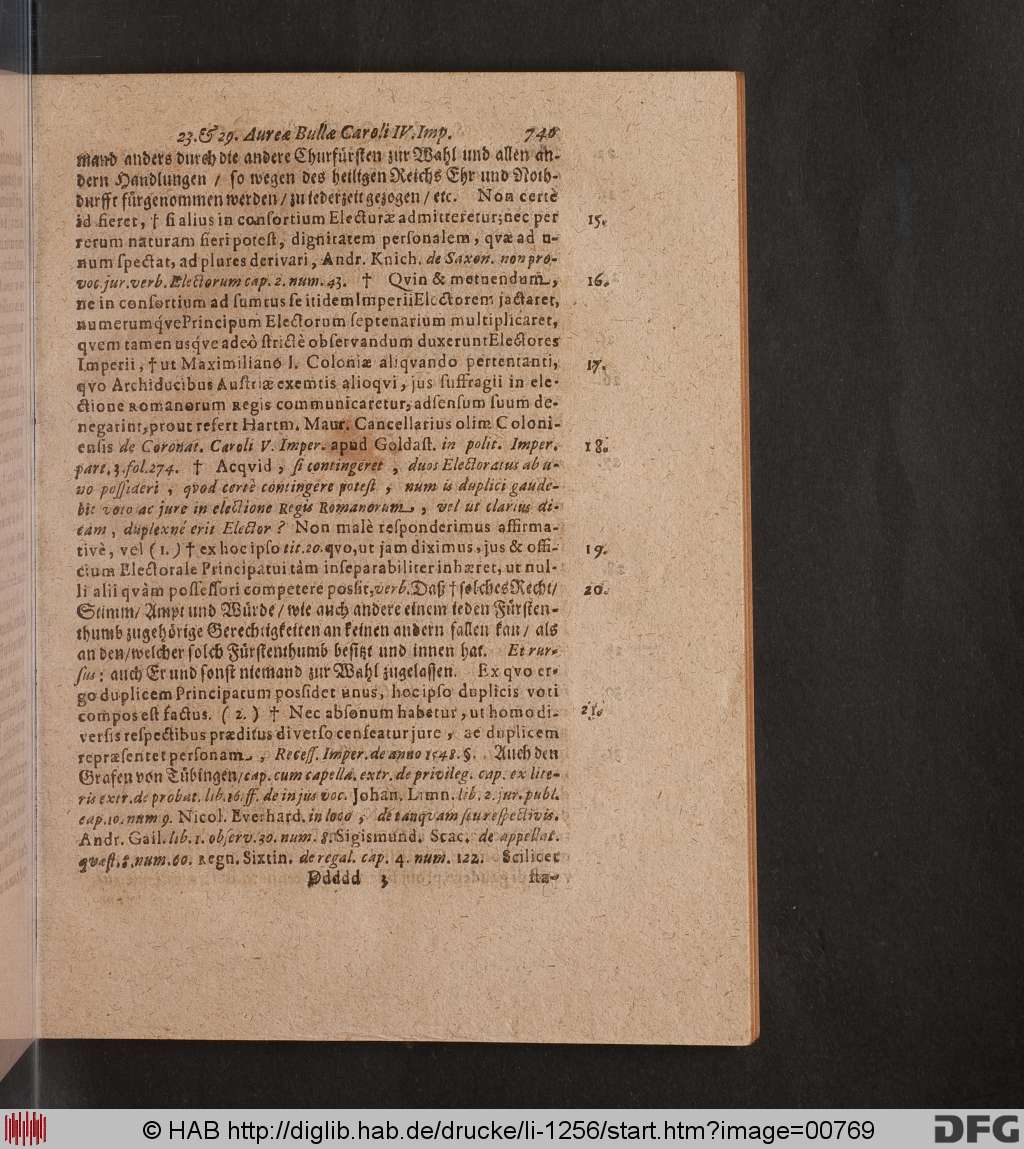 23. & 29. Aureæ Bullæ Caroli IV. Imp. 740
mand anders durch die andere Churfürsten zur Wahl und allen an-
dern Handlungen / so wegen des heiligen Reichs Ehr und Noth-
durfft fürgenommen werden / zu iederzeit gezogen / etc. Non certè
id fieret, † si alius in consortium Electuræ admitteretur; nec per 15.
rerum naturam fieri potest, dignitatem personalem, qvæ ad u-
num spectat, ad plures derivari, Andr. Knich. de Saxon. non pro-
voc. jur. verb. Electorum cap. 2. num. 43. † Qvin & metuendum, 16.
ne in consortium ad sumtus se itidem Imperii Electorem jactaret,
numerumq́ve Principum Electorum septenarium multiplicaret,
qvem tamen usqve adeò strictè observandum duxerunt Electores
Imperii, † ut Maximiliano I. Coloniæ aliqvando pertentanti, 17.
qvo Archiducibus Austriæ exemtis alioqvi, jus suffragii in ele-
ctione Romanorum Regis communicaretur, adsensum suum de-
negarint, prout refert Hartm. Maur. Cancellarius olim Coloni-
ensis de Coronat. Caroli V. Imper. apud Goldast. in polit. Imper. 18.
part. 3. fol. 274. † Acqvid, si contingeret, duos Electoratus ab u-
no possideri, qvod certè contingere potest, num is duplici gaude-
bit voto ac jure in electione Regis Romanorum, vel ut clarius di-
cam, duplexné erit Elector? Non malè responderimus affirma-
tivè, vel (1.) † ex hoc ipso tit. 20. qvo, ut jam diximus, jus & offi- 19.
cium Electorale Principatui tàm inseparabiliter inhæret, ut nul-
li alii qvàm possessori competere possit, verb. Daß † solches Recht / 20.
Stimm / Ampt und Würde / wie auch andere einem ieden Fürsten-
thumb zugehörige Gerechtigkeiten an keinen andern fallen kan / als
an den / welcher solch Fürstenthumb besitzt und innen hat. Et rur-
sus: auch Er und sonst niemand zur Wahl zugelassen. Ex qvo er-
go duplicem Principatum possidet unus, hoc ipso duplicis voti
compos est factus. (2.) † Nec absonum habetur, ut homo di- 21.
versis respectibus præditus diverso censeatur jure, ac duplicem
repræsentet personam, Recess. Imper. de anno 1548. §. Auch den
Grafen von Tübingen / cap. cum capella. extr. de privileg. cap. ex lite-
ris extr. de probat. lib. 16. ff. de in jus voc. Johan. Limn. lib. 2. jur. publ.
cap. 10. num 9. Nicol. Everhard. in loco, de tanquam seu respectivis.
Andr. Gail. lib. 1. observ. 30. num. 8. Sigismund. Scac. de appellat.
qvæst. 8. num. 60. Regn. Sixtin. de regal. cap. 4. num. 122. Scilicet
Ddddd 3 sta-
© HAB http://diglib.hab.de/drucke/li-1256/start.htm?image=00769
DFG